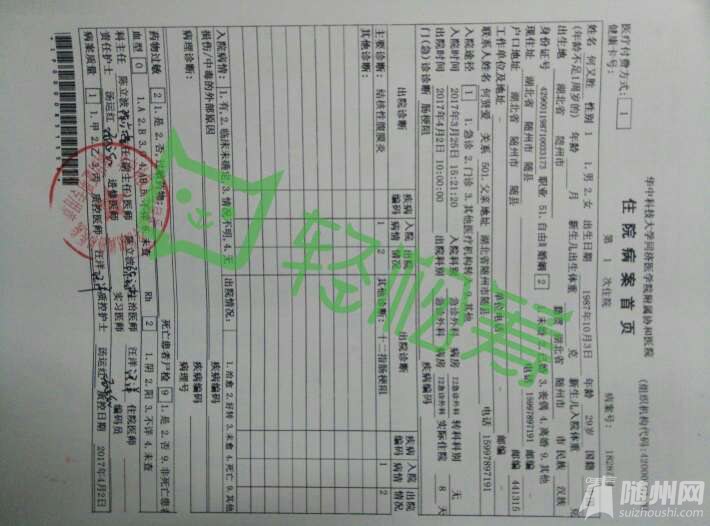 华中科技大学同济医学院附属协和医院 (组织机构代码:42000
住院病案首页
医疗付费方式: 1
健康卡号: 第 1 次住院 病案号: 1828
姓名 何又胜 性别 1 1.男 2.女 出生日期 1987年10月3日 年龄 29岁 国籍
(年龄不足1周岁的) 年龄 月 新生儿出生体重 克 新生儿入院体重 克
出生地 湖北省 随州市 随县 籍贯 湖北省 随州市 民族 汉族
身份证号 职业 51.自由 婚姻 2 1.未婚 2.已婚 3.丧偶 4.离婚 9.其他
现住址 湖北省 随州市 随县 电话 15997897191 邮编
户口地址 湖北省 随州市 随县 邮编 441315
工作单位及地址 - 单位电话 - 邮编
联系人姓名 何贤爱 关系 501.父亲 地址 湖北省随州市随县 电话 15997897191
入院途径 1 1.急诊 2.门诊 3.其他医疗机构转入 9.其他
入院时间 2017年3月25日 15:21:20 入院科别 急诊外科 病房 22急诊外科 转科科别 无
出院时间 2017年4月2日 10:00:00 出院科别 急诊外科 病房 22急诊外科 实际住院 8 天
门(急)诊诊断 肠梗阻 疾病编码
出院诊断 疾病编码 入院病情 出院情况 出院诊断 疾病编码 入院病情 出院情况
主要诊断: 结核性腹膜炎 1 2 其他诊断: 十二指肠梗阻 1 2
其他诊断:
入院病情: 1.有, 2.临床未确定, 3.情况不明, 4.无 出院情况: 1.治愈 2.好转 3.未愈 4.死亡 9.其他
损伤/中毒的外部原因 疾病编码
病理诊断: 疾病编码
病理号
药物过敏 2 1.是, 2.否, 过敏药物: 死亡患者尸检 9 1.是 2.否 9.非死亡患者
血型 0 1.A 2.B 3.O 4.AB 5.不详 6.未查 Rh 2 1.阴 2.阳 3.不详 4.未查
科主任 陈立波 主任(副主任)医师 陈立波 主治医师 汪洋 住院医师
责任护士 汤运红 进修医师 实习医师 编码员
病案质量 1 1.甲 2.乙 3.丙 质控医师 汪洋 质控护士 汤运红 质控日期 2017年4月2日
轻松筹
随州网
suizhoushi.com